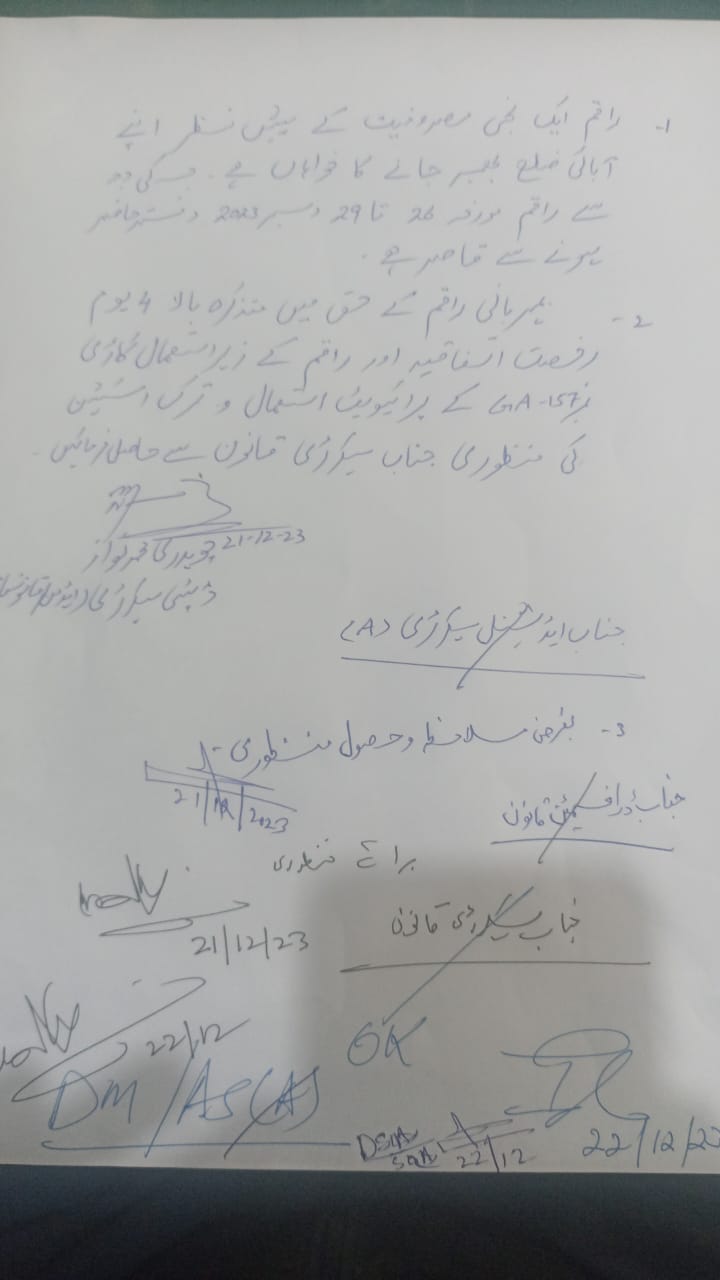 1- راقم ایک نجی مصروفیت کے پیش نظر اپنے
آبائی ضلع بھمبر جانے کا خواہاں ہے۔ جس کی وجہ
سے راقم مورخہ 26 تا 29 دسمبر 2023 دفتر حاضر
ہونے سے قاصر ہے۔
2- بمہربانی راقم کے حق میں متذکرہ بالا 4 یوم
رخصت اتفاقیہ اور راقم کے زیر استعمال گاڑی
نمبر GA-157 کے پرائیویٹ استعمال و ترک اسٹیشن
کی منظوری جناب سیکرٹری قانون سے حاصل فرمائیں۔
21-12-23
چوہدری محمد نواز
ڈپٹی سیکرٹری
جناب ایڈیشنل سیکرٹری (A)
3- بغرض ملاحظہ و حصول منظوری۔
21/12/2023
جناب ڈرافٹسمین قانون
برائے منظوری
21/12/23
جناب سیکرٹری قانون
22/12
OK
DM/AS(A)
22/12/23
22/12